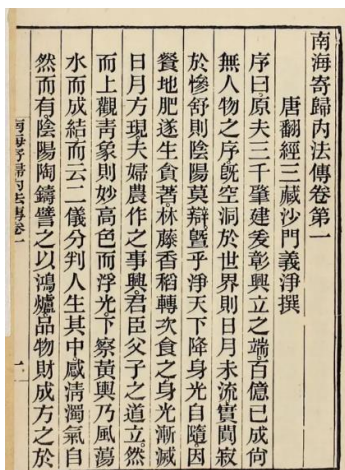 南海寄歸內法傳卷第一
唐翻經三藏沙門義淨撰
序曰原夫三千肇建爰彰興立之端百億已成尚
無人物之序旣空洞於世界則日月未流實闃寂
於慘舒則陰陽莫辯曁乎淨天下降身光自隨因
餐地肥遂生貪著林藤香稻轉次食之身光漸滅
日月方現夫婦農作之事興君臣父子之道立然
而上觀靑象則妙高色而浮光下察黃輿乃風蕩
水而成結而云二儀分判人生其中感淸濁氣自
然而有陰陽陶鑄譬之以鴻爐品物財成方之於
南海寄歸內法傳卷一
一